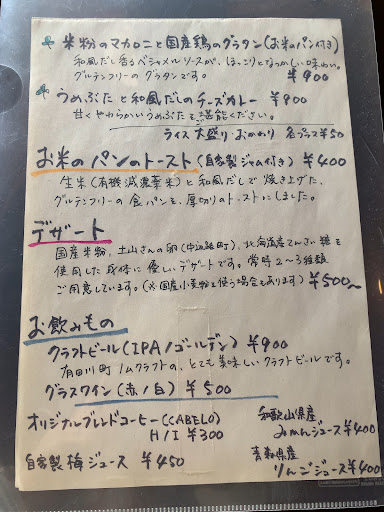 米粉のマカロニと国産鶏のグラタン(お米のパン付き)
和風だし香るベシャメルソースが、ほっこりとなつかしい味わい。
グルテンフリーのグラタンです。 ¥900
うめぶたと和風だしのチーズカレー ¥900
甘くやわらかいうめぶたをご堪能ください。
ライス大盛り・おかわり 各プラス¥50
お米のパンのトースト(自家製ジャム付き) ¥400
生米(有機減農薬米)と和風だしで焼き上げた、
グルテンフリーの食パンを、厚切りのトーストにしました。
デザート
国産米粉、土山さんの卵(中辺路町)、北海道産てんさい糖を
使用した身体に優しいデザートです。常時2〜3種類
ご用意しています。(※国産小麦粉を使う場合もあります) ¥500〜
お飲みもの
クラフトビール(IPA/ゴールデン) ¥900
有田川町ノムクラフトの、とても美味しいクラフトビールです。
グラスワイン(赤/白) ¥500
オリジナルブレンドコーヒー(CABELO)
H/I ¥300
和歌山県産
みかんジュース¥400
自家製梅ジュース ¥450
青森県産
りんごジュース¥400